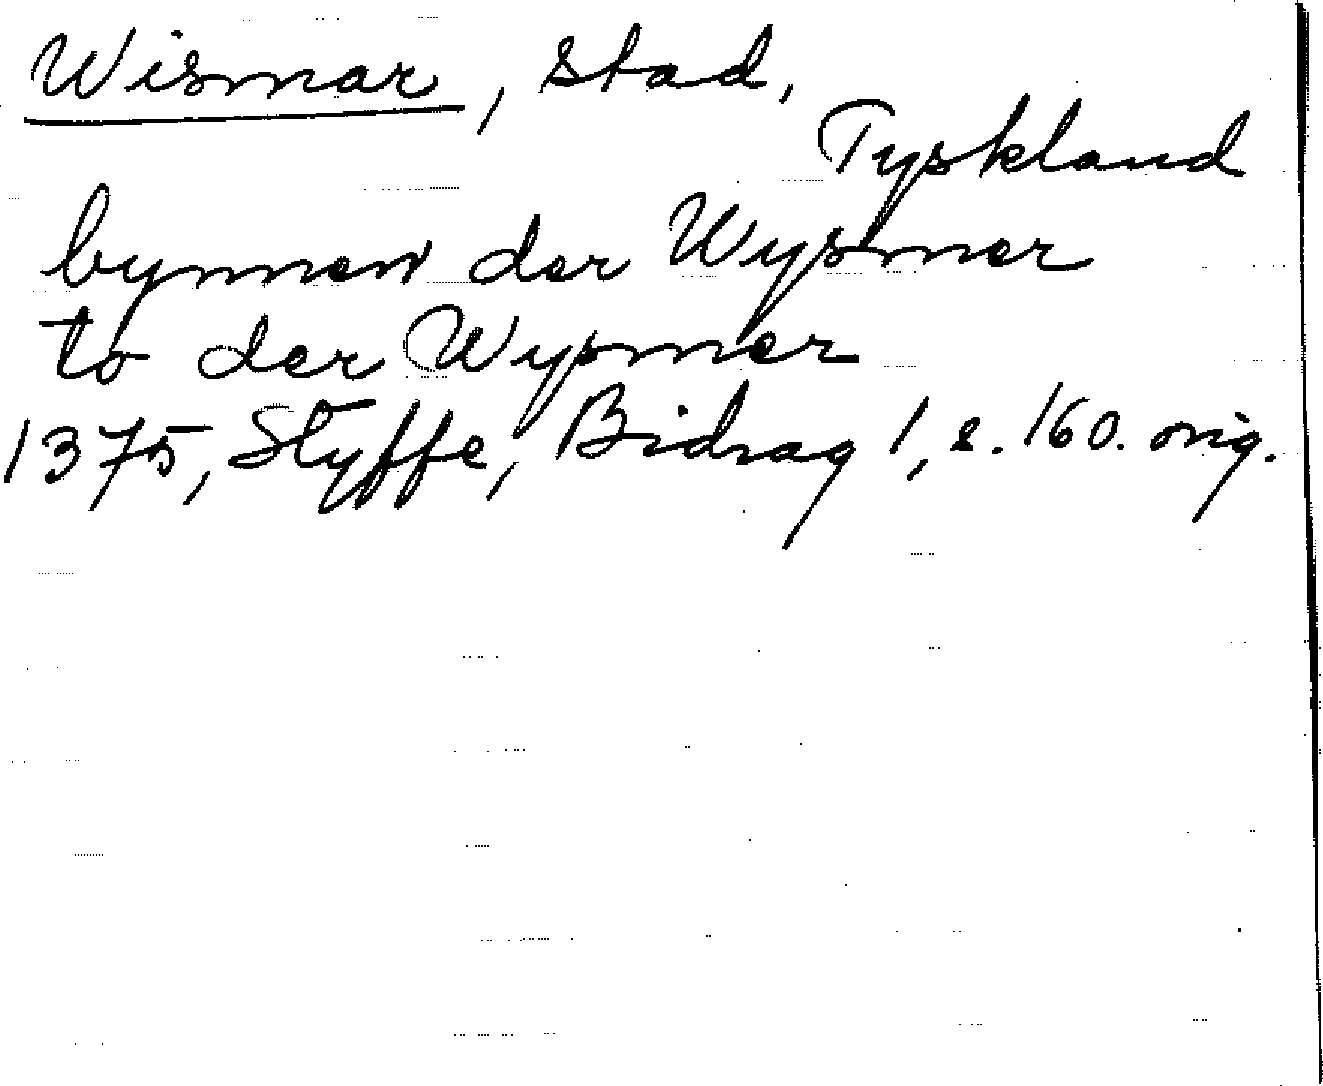 Wismar, stad,
Tyskland
bynnen der Wysmer
to der Wysmer
1375, Styffe, Bidrag 1, s. 160. orig.